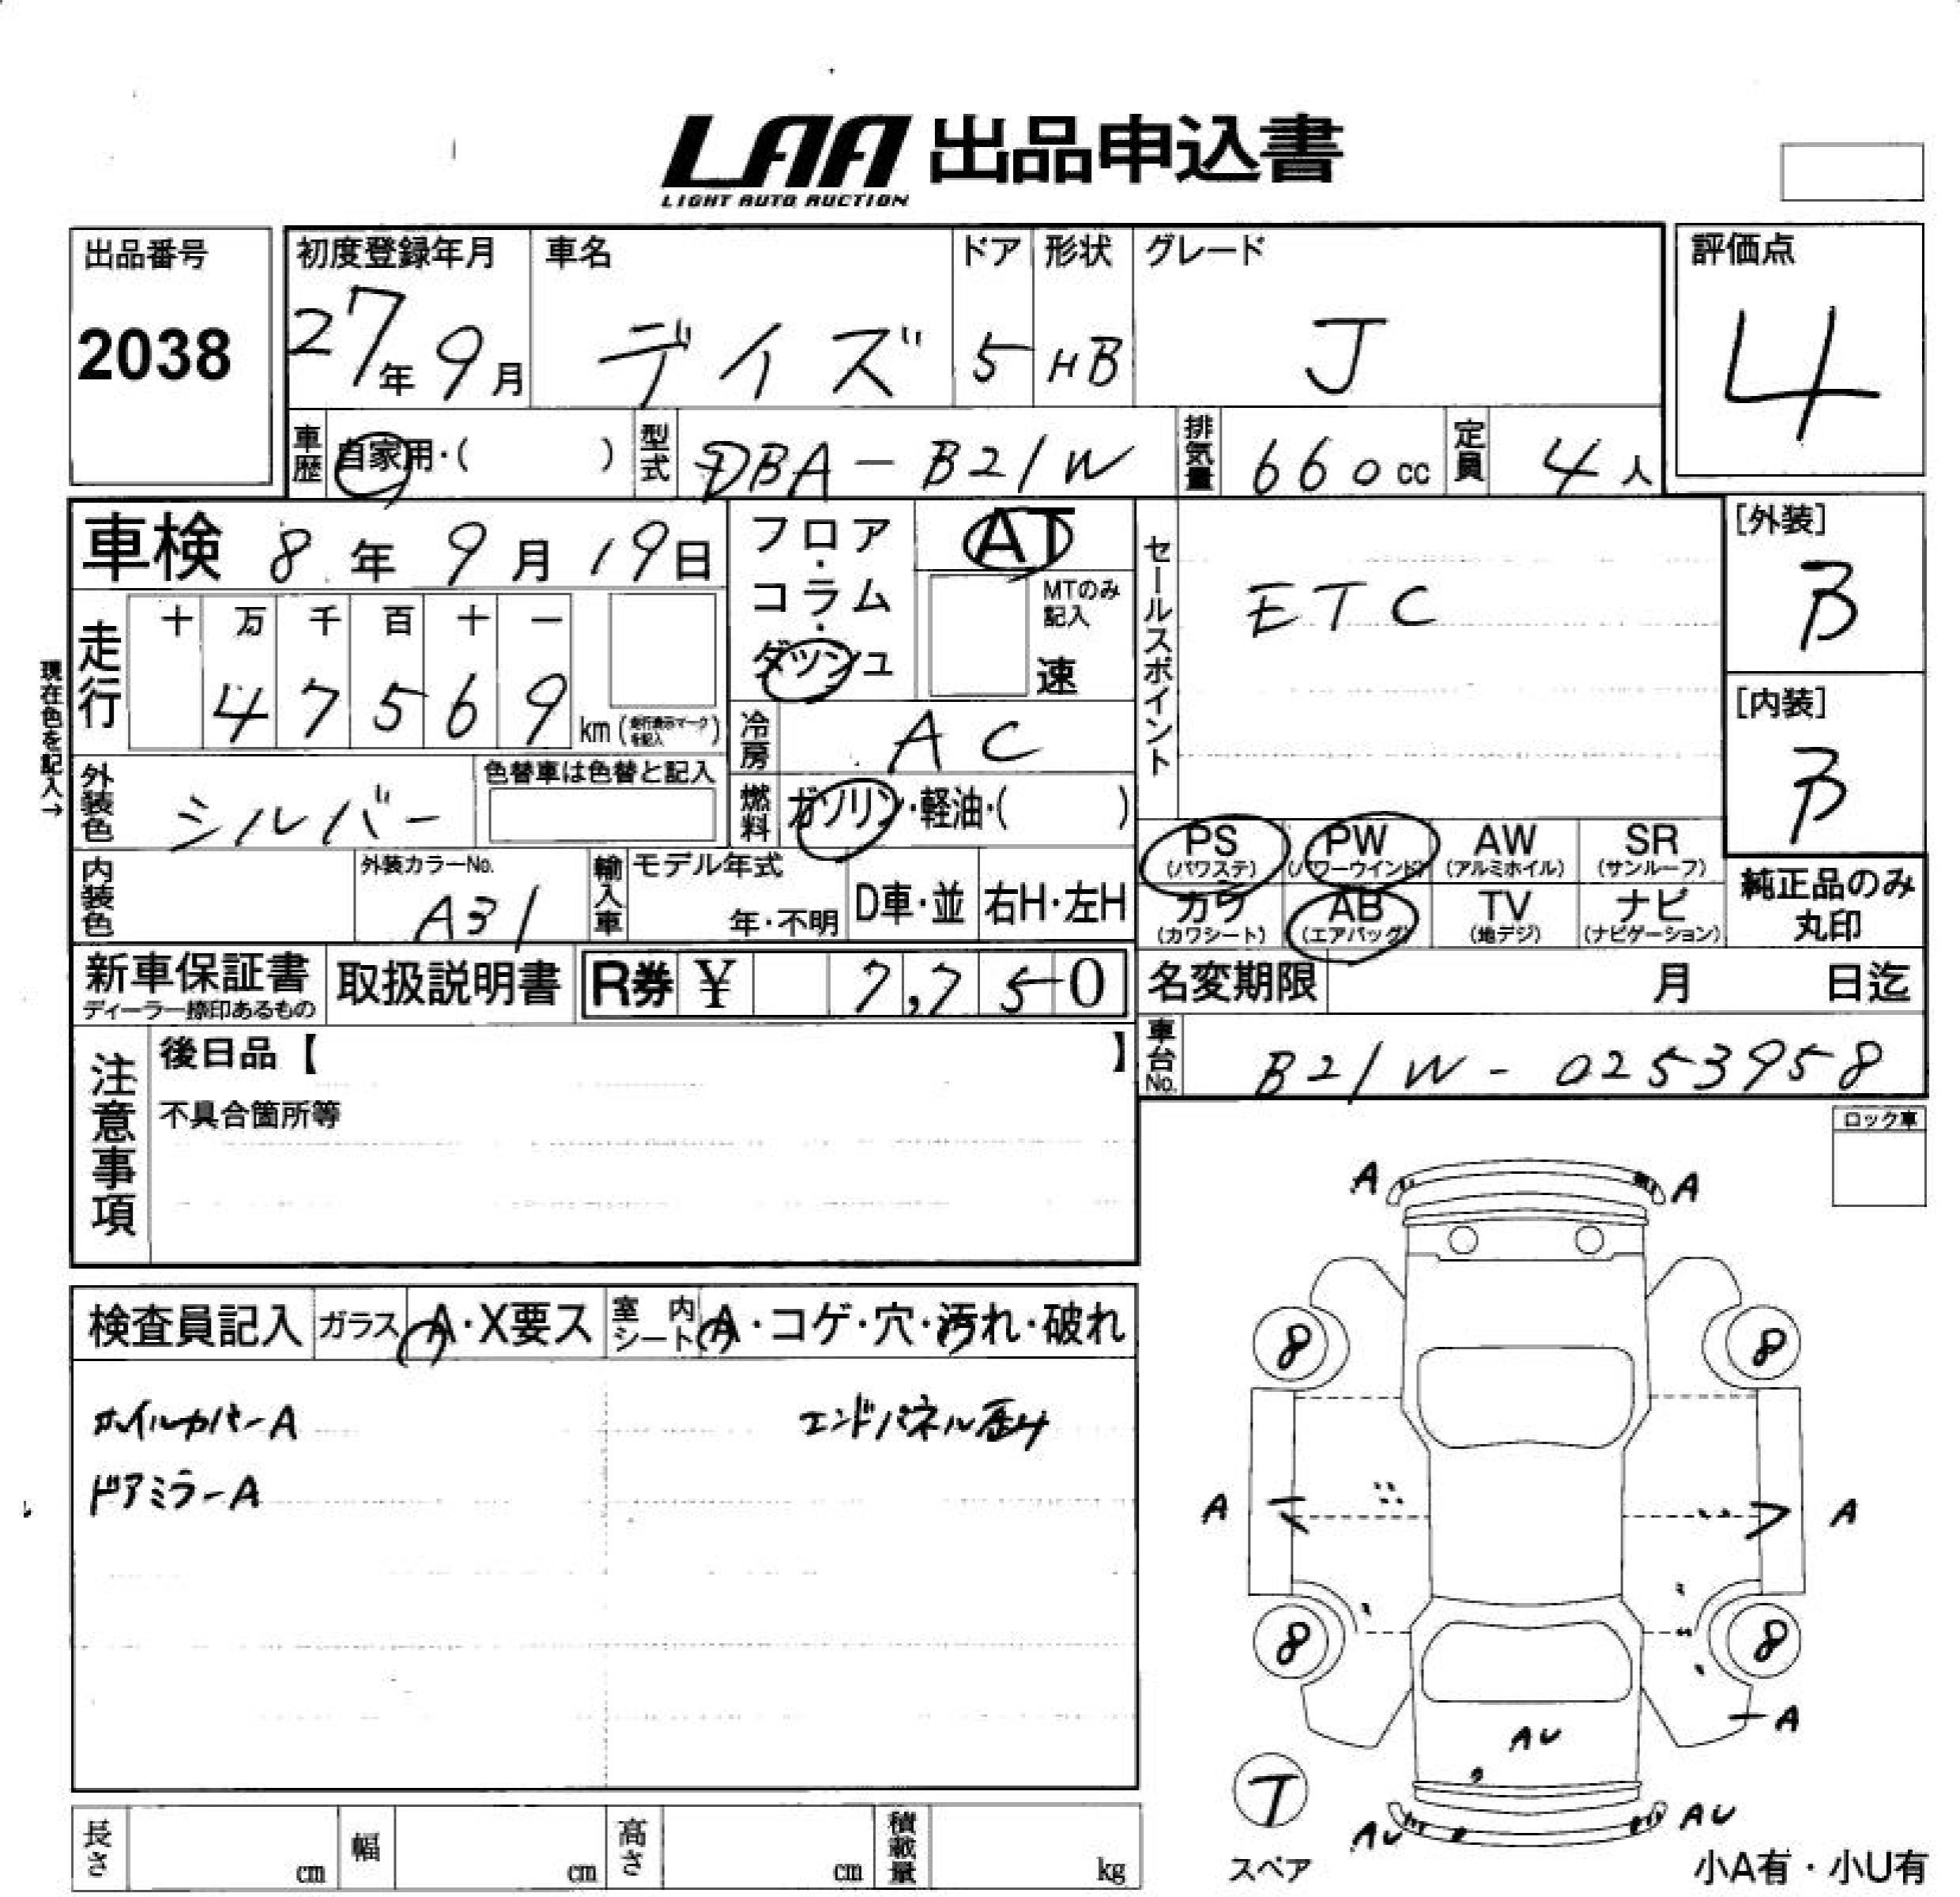 LAA 出品申込書
LIGHT AUTO AUCTION
出品番号
2038
初度登録年月
27年 9月
車名
デイズ
ドア
5
形状
HB
グレード
J
評価点
4
車歴 自家用・( )
型式 DBA-B21W
排気量 660cc
定員 4人
車検 8年 9月 19日
フロア・コラム・ダッシュ
AT
MTのみ記入
速
セールスポイント
ETC
[外装]
B
[内装]
B
現在色を記入→
走行
十 万 千 百 十 一
4 7 5 6 9 km (走行表示マークを記入)
冷房 AC
外装色 シルバー
色替車は色替と記入
燃料 ガソリン・軽油・( )
PS (パワステ)
PW (パワーウインド)
AW (アルミホイル)
SR (サンルーフ)
内装色
外装カラーNo.
A31
輸入車
モデル年式
年・不明
D車・並
右H・左H
カワ (カワシート)
AB (エアバッグ)
TV (地デジ)
ナビ (ナビゲーション)
純正品のみ
丸印
新車保証書
ディーラー捺印あるもの
取扱説明書
R券 ¥ 7,750
名変期限 月 日迄
車台No. B21W-0253958
注意事項
後日品【 】
不具合箇所等
ロック車
検査員記入
ガラス A・X要ス
室内シート A・コゲ・穴・汚れ・破れ
ホイルカバーA
エンドパネル歪み
ドアミラーA
A A
8 8
A A
8 8
A
AU
T
スペア
AU AU
小A有・小U有
長さ cm
幅 cm
高さ cm
積載量 kg